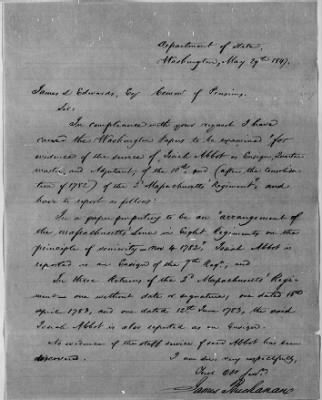 Department of State,
Washington, May 29th 1847.
James L Edwards, Esq Commr of Pensions,
Sir:
In compliance with your request I have
caused the Washington Papers to be examined "for
evidence of the services of Isaiah Abbot as Ensign, Quarter
master, and Adjutant, of the 10th and (after the
of 1782) of the 3d Massachusetts Regiment", and
have to report as follows:
In a paper purporting to be an "arrangement of
the Massachusetts Line in Eight Regiments on the
principle of seniority — Nov 4 1782", Isaiah Abbot is
reported as an Ensign of the 7th Regt, and
In three Returns of the 3d Massachusetts Regi-
ment — one without date or signature, one dated 18th
April 1783, and one dated 12th June 1783, the said
Isaiah Abbot is also reported as an Ensign.
No evidence of the staff service of said Abbot has been
discovered. I am Sir, very respectfully,
Your Obt Servt.
James Buchanan